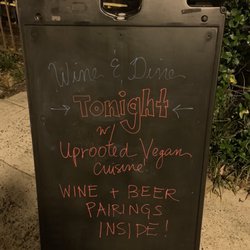 Wine & Dine
→ Tonight ←
w/
Uprooted Vegan
Cuisine!
WINE + BEER
PAIRINGS
INSIDE!